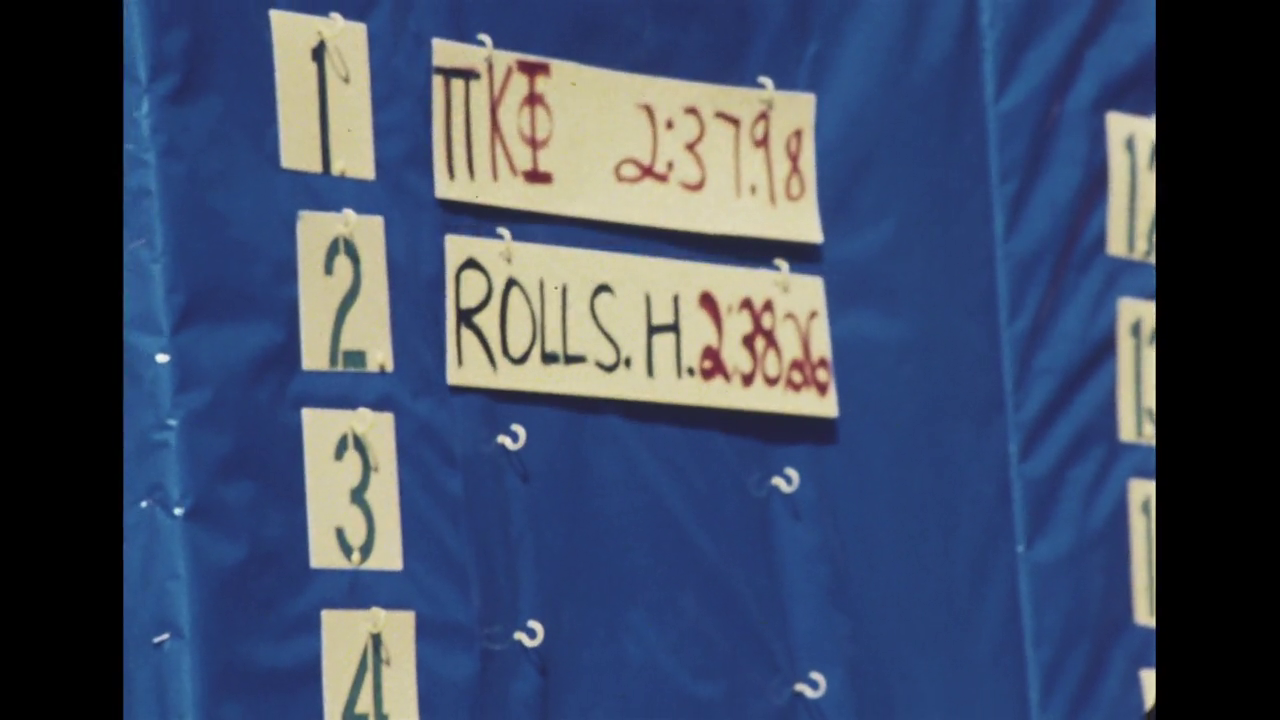 1 ΠΚΦ 2:37.98
2 ROLLS. H. 2:38.26
3
4